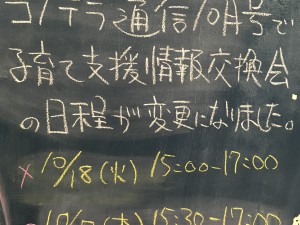 コノテラ通信10月号で
子育て支援情報交換会
の日程が変更になりました。
× 10/18(火) 15:00-17:00
(木) 15:30-17:00